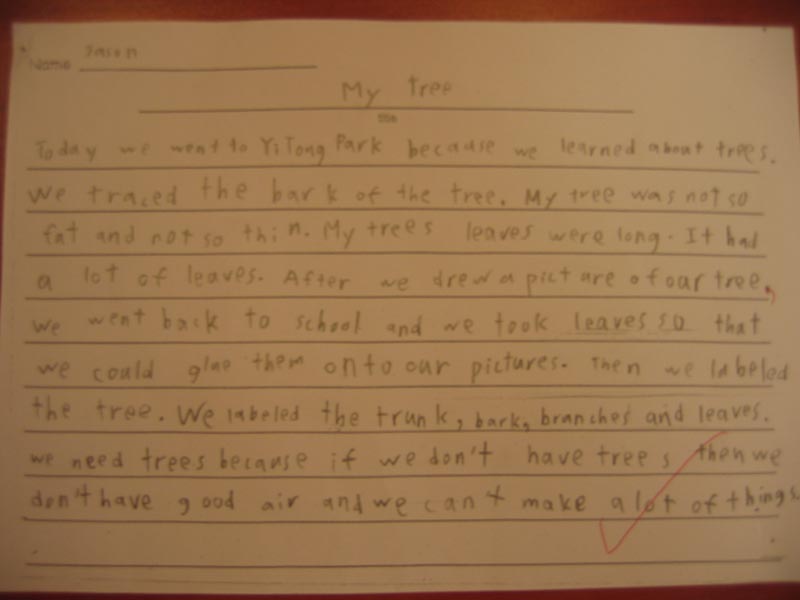 Name Jason
My tree
Today we went to YiTong Park because we learned about trees.
We traced the bark of the tree. My tree was not so
fat and not so thin. My trees leaves were long. It had
a lot of leaves. After we drew a picture of our tree,
we went back to school and we took leaves so that
we could glue them onto our pictures. Then we labeled
the tree. We labeled the trunk, bark, branches and leaves.
we need trees because if we don't have trees then we
don't have good air and we can't make a lot of things.